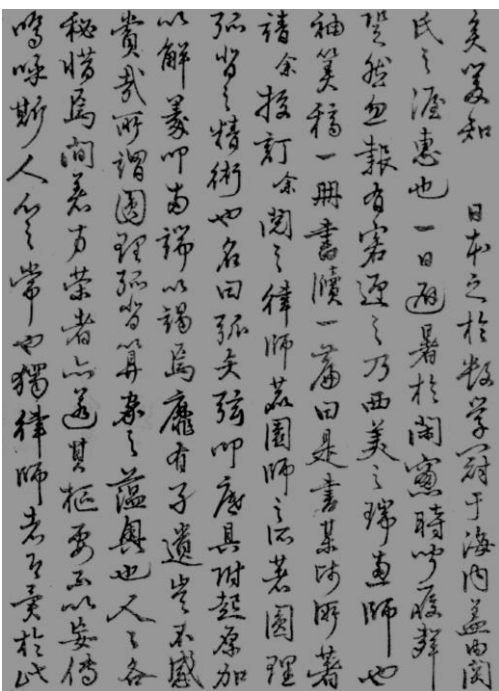 矣 知 日本之於数学冠于海内盖由関
氏之渥惠也一日避暑於閑窻時
跫然忽報有客迎之乃西美之瑞惠師也
袖 稿一冊書牘一篇曰是書某師所著
請余校訂余閲之律師 園師之所著圓理
弧背之精術也名曰弧矢弦叩底具附起原加
以解義叩両端以竭焉靡有孑遺豈不感
賞哉所謂圓理弧背算家之薀奥也人々各
秘惜焉間 者亦 其樞要不以妄傳
嗚呼斯人心之常也獨律師者 於此